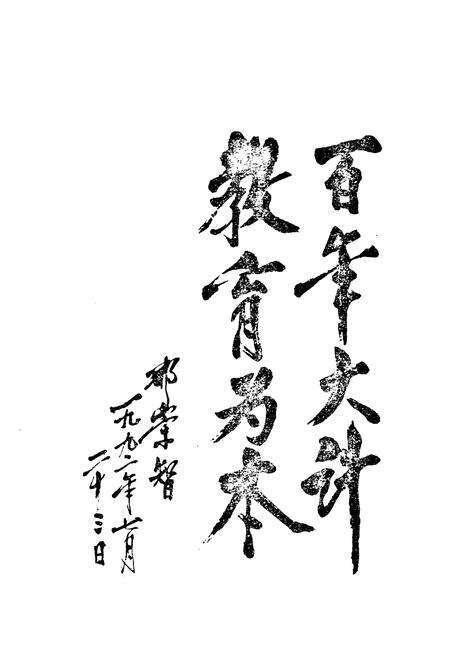 百年大计
教育为本
邢崇智
一九九一年七月
二十三日